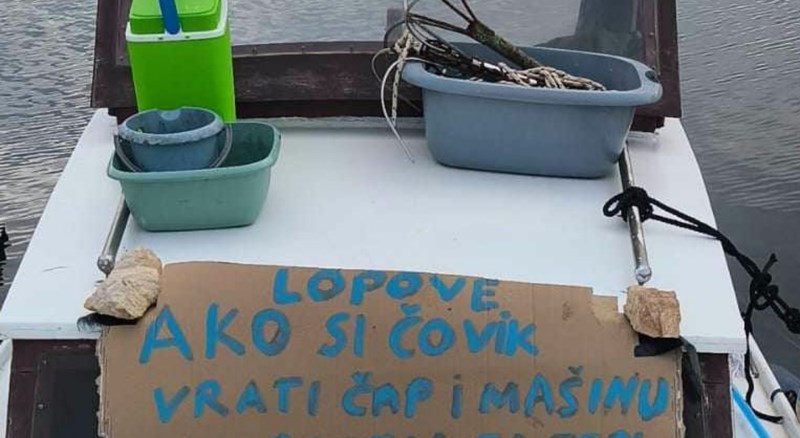 LOPOVE
AKO SI ČOVIK
VRATI ČAP i MAŠINU